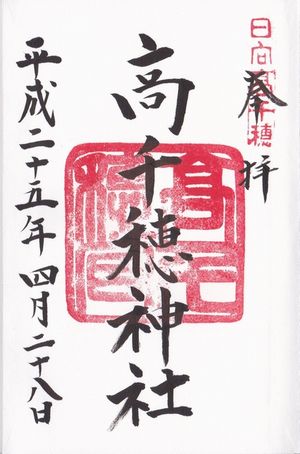 奉拝
日向高千穂
高千穂神社
平成二十五年四月二十八日